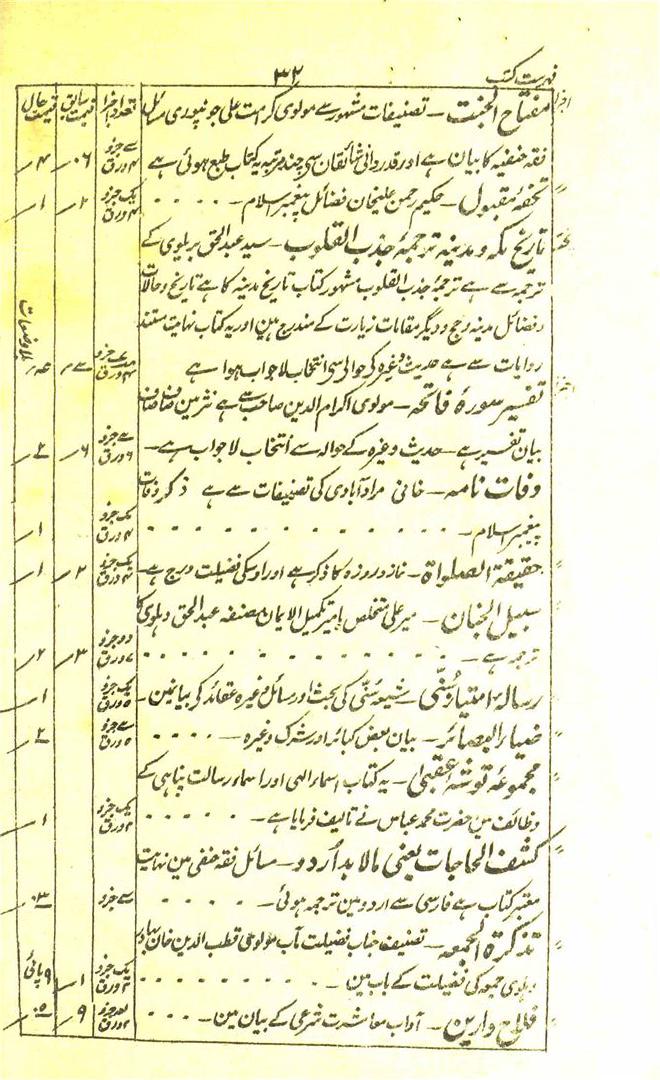 فہرست کتب ۳۲
تعداد اجزا قیمت سابق قیمت حال
مفتاح الجنت ۔ تصنیفات مشہور سے مولوی کرامت علی جونپوری مسائل
فقہ حنفیہ کا بیان ہے اور قدردانی شائقان سی چند مرتبہ یہ کتاب طبع ہوئی ہے
تحفۂ مقبول ۔ حکیم رحمن علیخان فضائل پیغمبر اسلام ۔ یک جزو ۴ ورق ۲؍ ۱؍
تاریخ مکہ و مدینہ ترجمۂ جذب القلوب ۔ سید عبدالحق بریلوی کے
ترجمہ سے ہے ترجمۂ جذب القلوب مشہور کتاب تاریخ مدینہ کا ہے تاریخ و حالات
و فضائل مدینہ و حج و دیگر مقامات زیارت کے مندرج ہین اور یہ کتاب نہایت مستند
روایات سے ہے حدیث وغیرہ کے حوالی سی انتخاب لاجواب ہوا ہے
تفسیر سورۂ فاتحہ ۔ مولوی اکرام الدین صاحب سے ہے نثر مین صاف صاف
بیان تفسیر ہے ۔ حدیث وغیرہ کے حوالہ سے انتخاب لاجواب ہے ۔ ۶؍
وفات نامہ ۔ خانی مرادآبادی کی تصنیفات سے ہے ذکر وفات
پیغمبر اسلام ۔ یک جزو ۴ ورق ۱؍
حقیقۃ الصلواۃ ۔ نماز و روزہ کا ذکر ہے اور اوسکی فضیلت درج ہے ۔ یک جزو ۲؍ ۱؍
سبیل الجنان ۔ میر علی متخلص بامیر تکمیل الایمان مصنفہ عبدالحق دہلوی کا
ترجمہ ہے ۔ دو جزو ۷ ورق ۳؍ ۲؍
رسالۂ امتیاز سُنّی ۔ شیعہ سُنّی کی بحث اور مسائل غیرہ عقائد کی بیانمین ۔ یک جزو ۵ ورق ۱؍
ضیاء البصائر ۔ بیان بعض کبائر اور شرک وغیرہ ۔
مجموعۂ توشۂ عقبیٰ ۔ یہ کتاب اسماء الٰہی اور اسماء رسالت پناہی کے
وظائف مین حضرت محمد عباس نے تالیف فرمایا ہے ۔ یک جزو ۱؍
کشف الحاجات یعنی مالا بد اُردو ۔ مسائل فقہ حنفی مین نہایت
معتبر کتاب ہے فارسی سے اردو مین ترجمہ ہوئی ۔
تذکرۃ الجمعہ ۔ تصنیف جناب فضیلت مآب مولوی قطب الدین خان بہادر
دہلوی جمعہ کی فضیلت کے باب مین ۔ یک جزو ۱؍ ۹ پائی
فلاح دارین ۔ آداب معاشرت شرعی کے بیان مین ۔ ۹؍